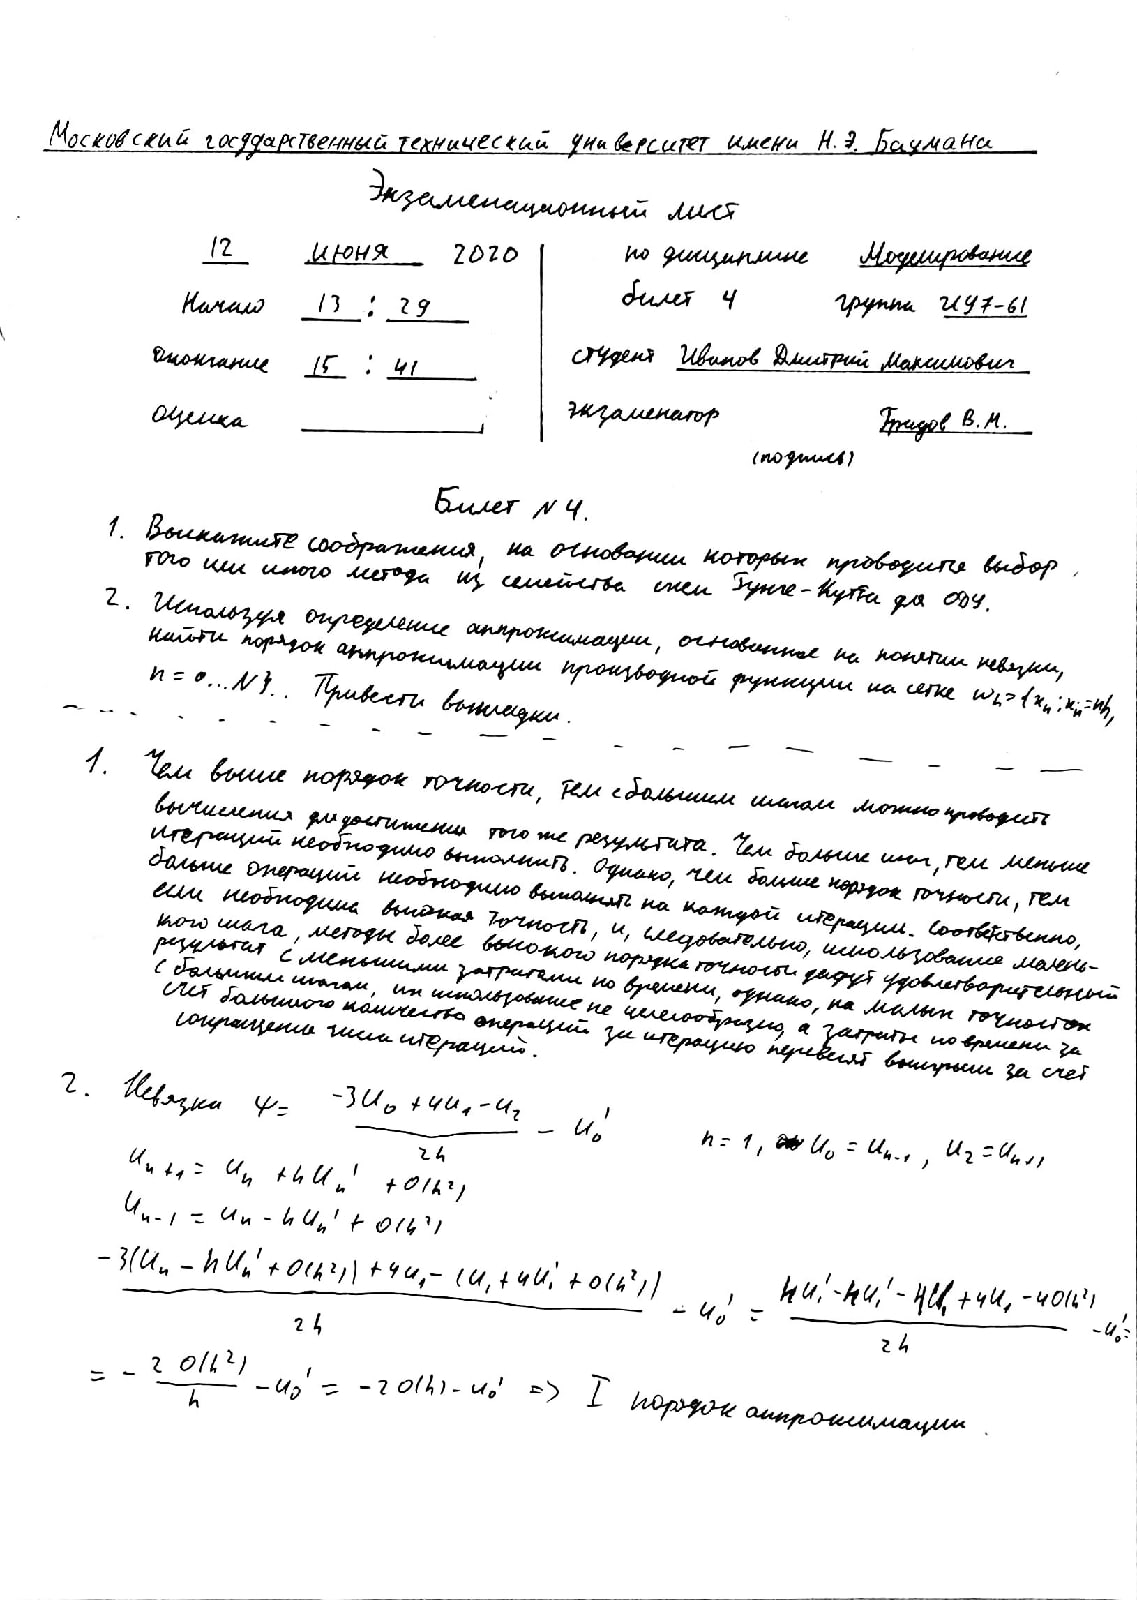 Московский государственный технический университет имени Н.Э. Баумана
Экзаменационный лист
12 июня 2020
Начало 13 : 29
окончание 15 : 41
оценка
по дисциплине Моделирование
билет 4 группа ИУ7-61
студент Иванов Дмитрий Максимович
экзаменатор Градов В.М.
(подпись)
Билет № 4.
1. Выскажите соображения, на основании которых проводится выбор
того или иного метода из семейства схем Рунге-Кутта для ОДУ.
2. Используя определение аппроксимации, основанное на понятии невязки,
найти порядок аппроксимации производной функции на сетке ωh={xn: xn=nh,
n=0...N}.. Привести выкладки.
1. Чем выше порядок точности, тем с большим шагом можно проводить
вычисления для достижения того же результата. Чем больше шаг, тем меньше
итераций необходимо выполнить. Однако, чем больше порядок точности, тем
больше операций необходимо выполнять на каждой итерации. Соответственно,
если необходима высокая точность, и, следовательно, использование малень-
кого шага, методы более высокого порядка точности дадут удовлетворительный
результат с меньшими затратами по времени, однако, на малых точностях
с большим шагом, их использование не целесообразно, а затраты по времени за
счет большого количества операций за итерацию перевесят выигрыш за счет
сокращения числа итераций.
2. Невязка ψ = (-3U0 + 4U1 - U2)/2h - U0' n = 1, U0 = Un-1, U2 = Un+1
Un+1 = Un + hUn' + O(h²)
Un-1 = Un - hUn' + O(h²)
(-3(Un - hUn' + O(h²)) + 4U1 - (U1 + hU1' + O(h²)))/2h - U0' = (4U1' - 4U1' - 4U1 + 4U1 - 4O(h²))/2h - U0' =
= - 2O(h²)/h - U0' = -2O(h) - U0' => I порядок аппроксимации.